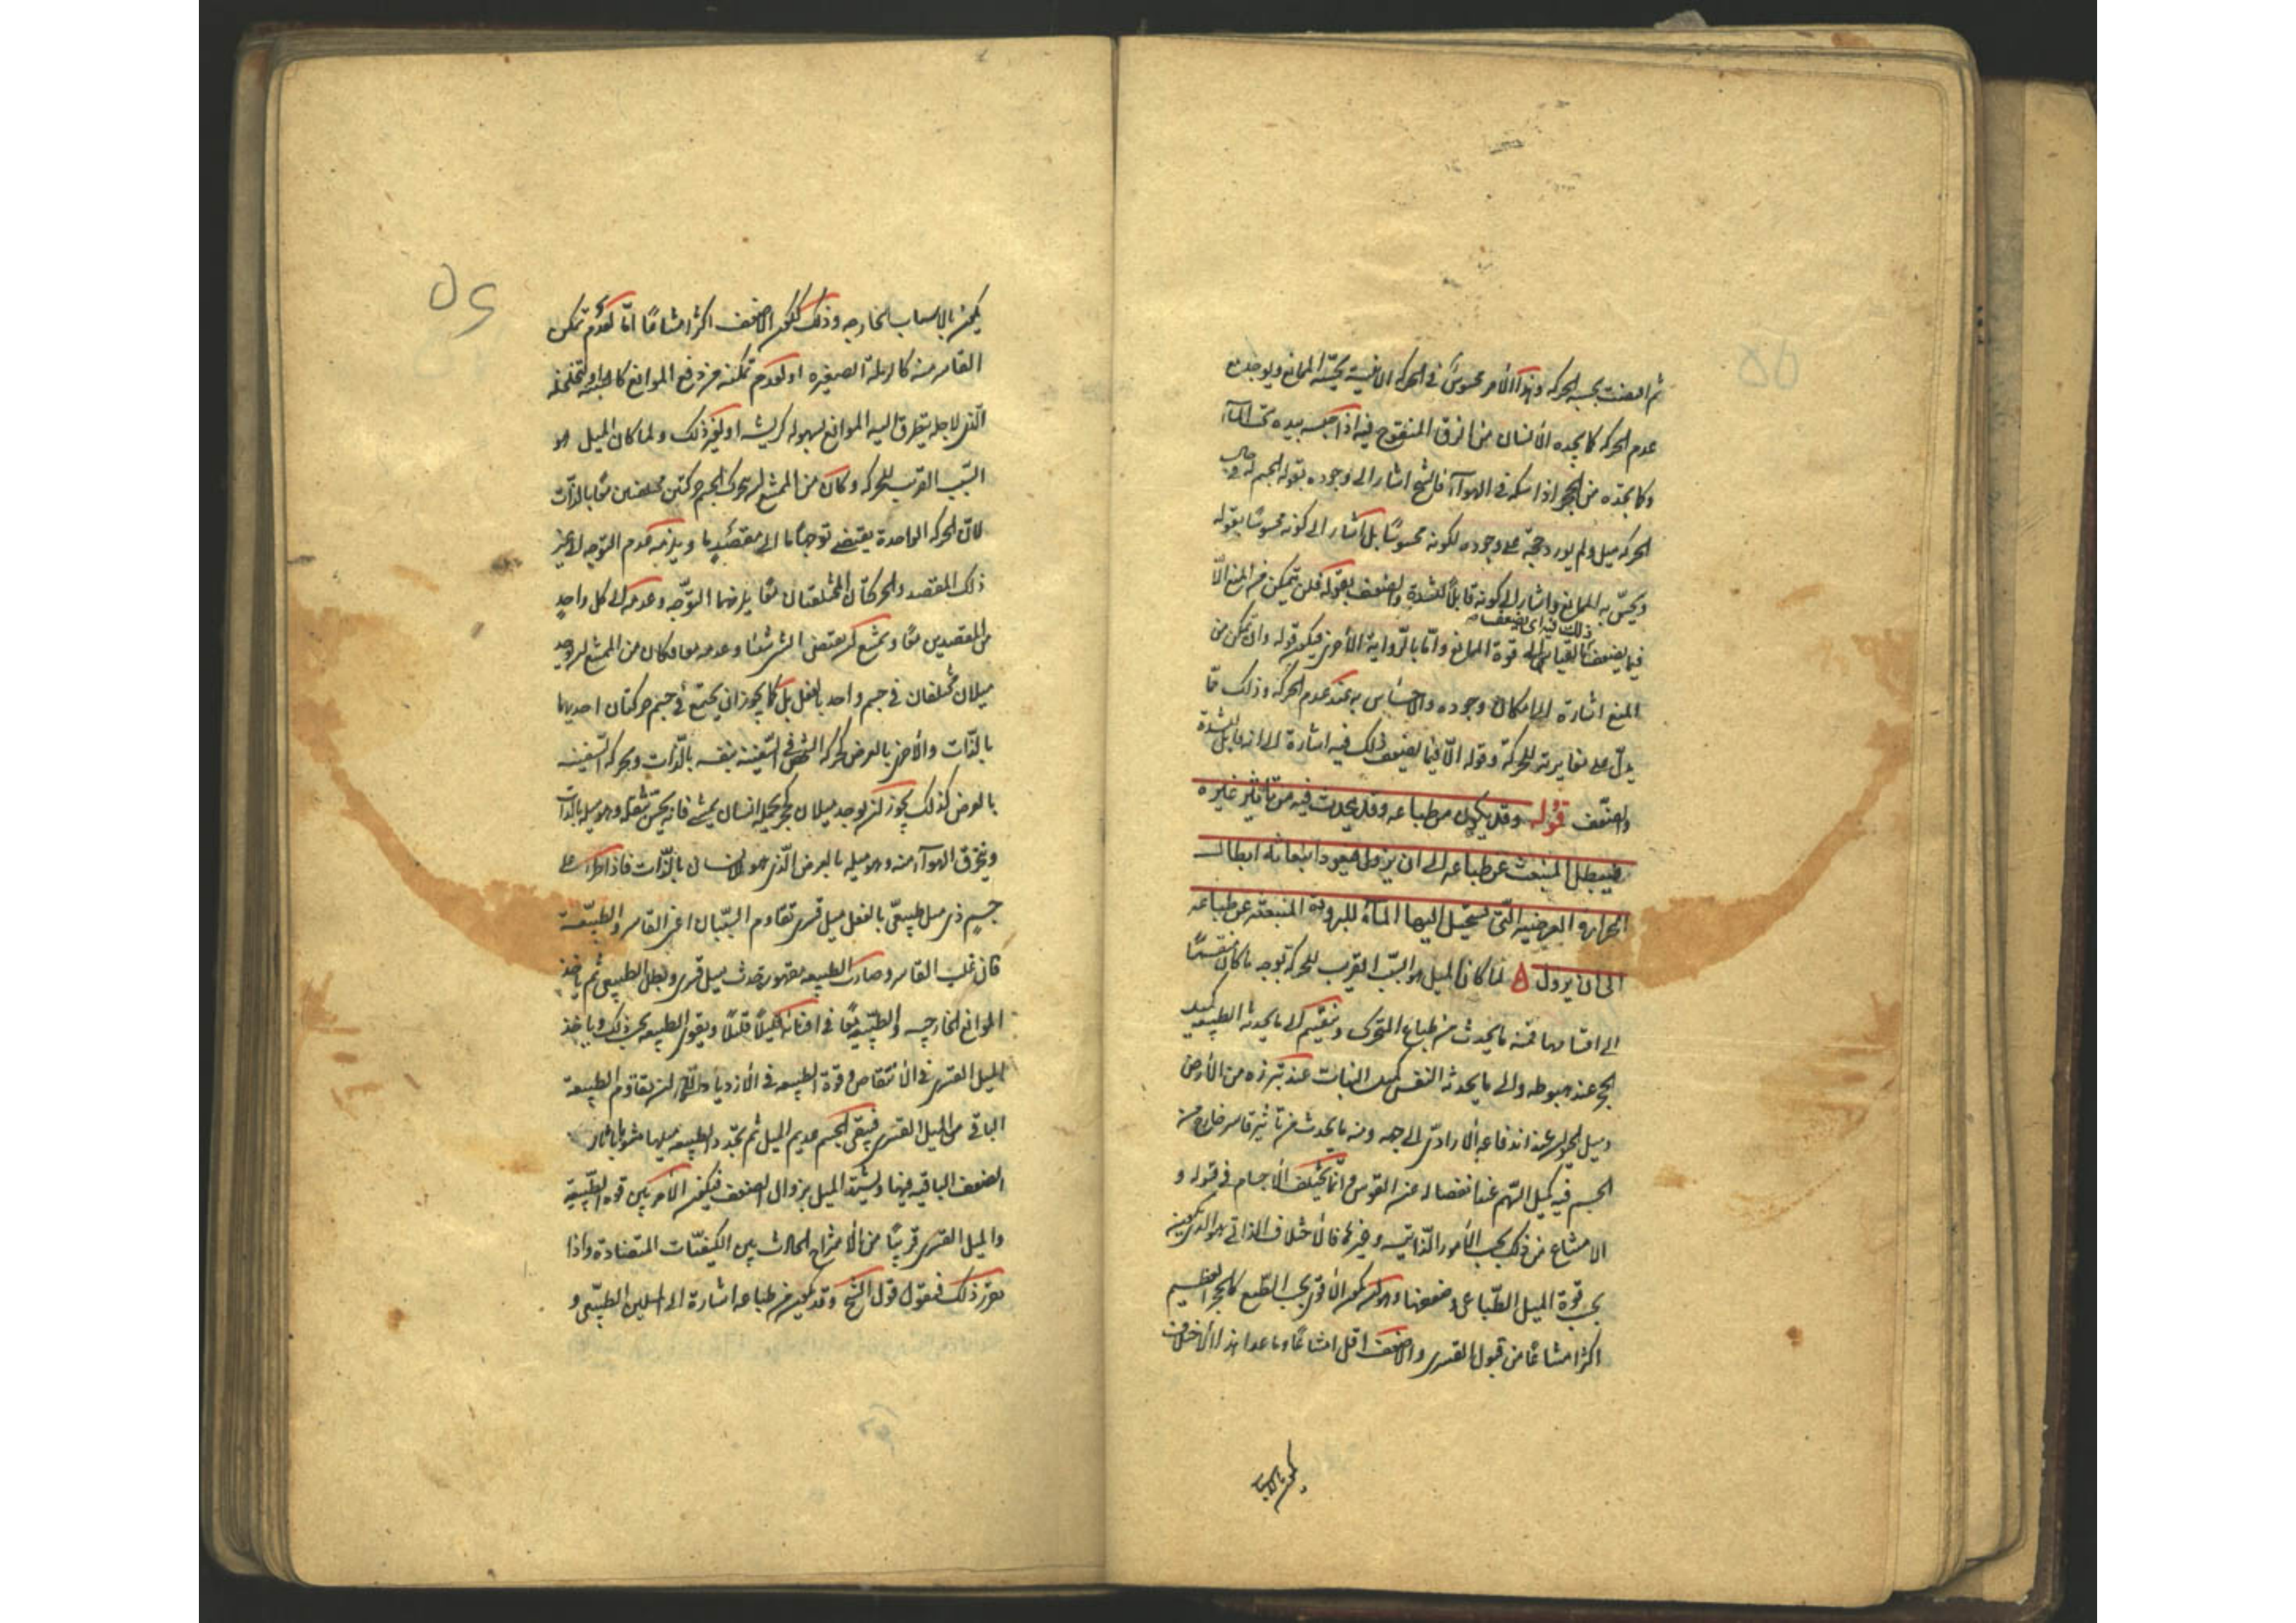 ثم اقتضت بحسبه الحركة وهذا الأمر محسوس في الحركة الأينية يحسه الممانع ويوجد مع
عدم الحركة كما يجده الانسان من الزق المنفوخ فيه اذا حبسه بيده تحت المآء
وكما يجده من الحجر اذا اسكنه في الهوآء فالشيخ اشار الى وجوده بقوله الجسم له في حال
الحركة ميل ولم يورد حجة على وجوده لكونه محسوسًا بل اشار الى كونه محسوسًا بقوله
ويحس به الممانع واشار الى كونه قابلًا للشدة والضعف بقوله فلن يتمكن من المنع الّا
ذلك فيه اى يضعف
فيما يضعف بالقياس الى قوة الممانع وامّا بالرواية الأخرى فيكون قوله وان تمكن من
المنع اشارة الى امكان وجوده والاحساس به عند عدم الحركة وذلك ممّا
يدلّ على مغايرته للحركة وقوله الّا فيما يضعف ذلك فيه اشارة الى انه قابل للشدة
والضعف قوله وقد يكون من طباعه وقد يحدث فيه من تأثير غيره
فيبطل المنبعث عن طباعه الى ان يزول فيعود انبعاثه ابطال
الحرارة العرضية التى تستحيل اليها المآء للبرودة المنبعثة عن طباعه
الى ان يزول ۵ لمّا كان الميل هو السبب القريب للحركة بوجه ما كان منقسمًا
الى اقسامها فمنه ما يحدث من طباع المتحرك وينقسم الى ما يحدثه الطبيعه كميل
الحجر عند هبوطه والى ما يحدثه النفس كميل النبات عند تبرزه من الأرض
وميل الحيوان عند اندفاعه الارادى الى جهه ومنه ما يحدث من تأثير قاسر خارج من
الجسم فيه كميل السهم عند انفصاله عن القوس وانما يختلف الأجسام في قبوله و
الامتناع من ذلك بحسب الأمور الذاتية وغيرها فالاختلاف الذاتى هو الذى يكون
بحسب قوة الميل الطباعى وضعفها وهو ان يكون الأقوى بحسب الطبع كالحجر العظيم
اكثر امتناعًا من قبول القسرى والاضعف اقل امتناعًا وما عدا هذا الاختلاف
يكون بالاسباب
يكون بالاسباب الخارجه وذلك ككون الاضعف اكثر امتناعًا امّا لعدم تمكن
القاسر منه كالرملة الصغيرة او لعدم تمكنه من دفع الموانع كالتبنة او لتخلخله
الذى لاجله يتطرق اليه الموانع بسهوله كالريشه او لغير ذلك ولما كان الميل هو
السبب القريب للحركه وكان من الممتنع ان يتحرك الجسم حركتين مختلفتين معًا بالذات
لانّ الحركه الواحدة يقتضى توجهًا ما الى مقصدٍ ما ويلزمه عدم التوجه الى غير
ذلك المقصد والحركتان المختلفتان معًا يلزمهما التوجّه وعدمه الى كل واحدٍ
من المقصدين معًا ويمتنع ان يقتضى الشئ شيئًا وعدمه معا فكان من الممتنع ان يوجد
ميلان مختلفان في جسم واحد بالفعل بل كما يجوز ان يجتمع في جسم حركتان احديهما
بالذّات والأخرى بالعرض كحركه الشخص في السّفينة بنفسه بالذّات وبحركه السّفينه
بالعرض كذلك يجوز ان يوجد ميلان كحجر يحمله انسان يمشى فانه يحسّ بثقله وهو ميله بالذات
وينخرق الهوآء منه وهو ميله بالعرض الّذى هو للانسان بالذّات فاذا طرأ على
جسمٍ ذى ميل طبيعىّ بالفعل ميل قسرى تقاوم السّببان اعنى القاسر والطبيعة
فان غلب القاسر وصارت الطبيعه مقهورة حدث ميل قسرى وبطل الطبيعى ثم ياخذ
الموانع الخارجيه والطبيعه معًا في افنائه قليلًا قليلًا ويقوى الطبيعه بحسب ذلك وياخذ
الميل القسرى في الأنتقاص وقوة الطبيعه في الأزدياد الى ان يقاوم الطبيعة
الباقى من الميل القسرى فيبقى الجسم عديم الميل ثم يجدد الطبيعه ميلها مشوبا باثار
الضعف الباقيه فيها ويشتد الميل بزوال الضعف فيكون الأمر بين قوة الطّبيعة
والميل القسرى قريبًا من الأمتزاج الحادث بين الكيفيّات المتضادة واذا
تقرّر ذلك فنقول قول الشيخ وقد يكون من طباعه اشارة الى الميلين الطبيعى و